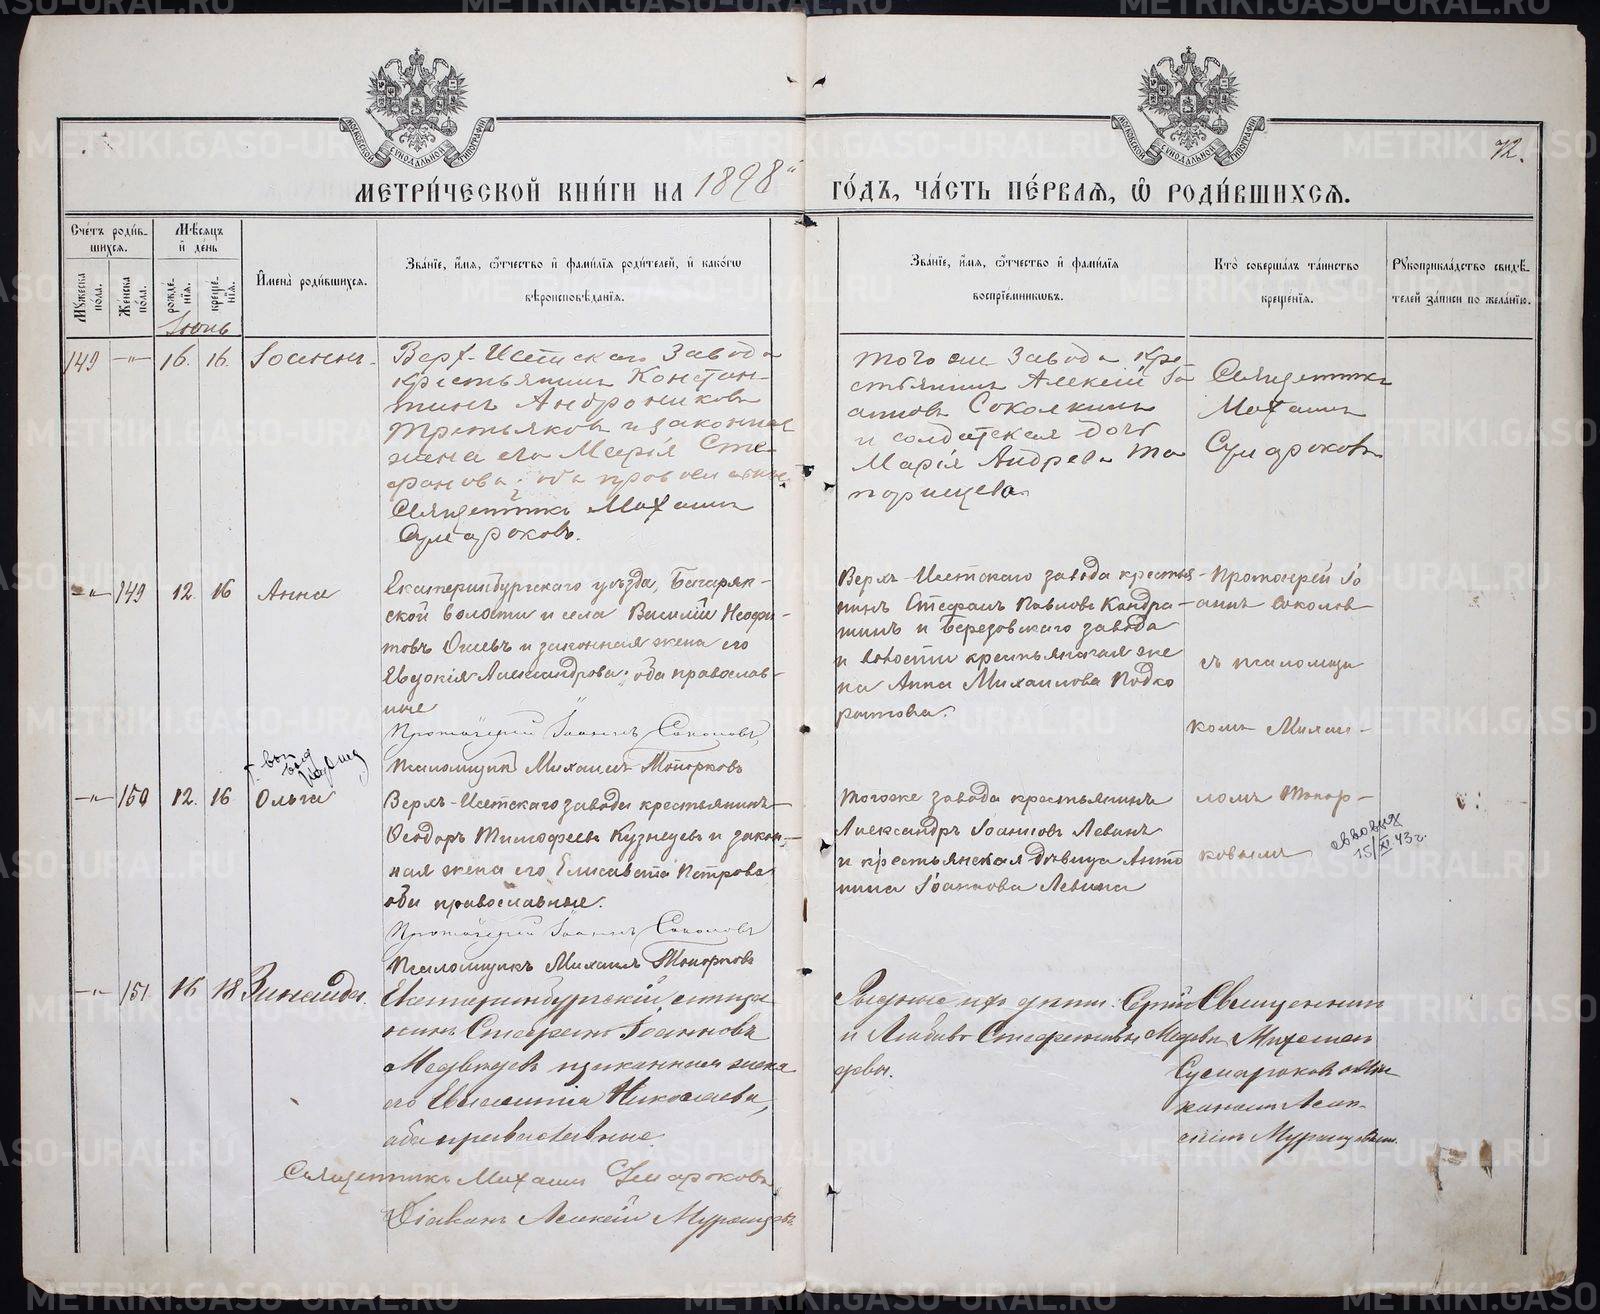 72.
МЕТРИ́ЧЕСКОЙ КНИ́ГИ НА 1898 ГО́ДЪ, ЧА́СТЬ ПЕ́РВАЯ, Ѡ РОДИ́ВШИХСЯ.
Сче́тъ роди́вшихся.
Мꙋ́жеска по́ла.
Же́нска по́ла.
Мѣ́сяцъ и҆ де́нь
рожде́нїя.
креще́нїя.
И҆мена̀ роди́вшихся.
Зва́нїе, и҆́мя, ѻ҆́тчество и҆ фами́лїя роди́телей, и҆ како́гѡ
вѣроисповѣ́данїя.
Зва́нїе, и҆́мя, ѻ҆́тчество и҆ фами́лїя
воспрїе́мникѡвъ.
Кто̀ соверша́лъ та́инство
креще́нїя.
Рꙋкоприкла́дство свидѣ́телей за́писи по жела́нїю.
Іюнь
149 -"- 16. 16. Іоаннъ.
Верх-Исетскаго Завода
крестьянинъ Констан-
тинъ Андрониковъ
Третьяковъ и законная
жена его Марія Сте-
фанова; оба православные
Священникъ Михаилъ
Сумароковъ.
того же завода кре-
стьянинъ Алексій Іо-
анновъ Соколкинъ
и солдатская дочь
Марія Андреева То
порищева.
Священникъ
Михаилъ
Сумароковъ
-"- 149 12. 16 Анна
Екатеринбургскаго уѣзда, Багаряк-
ской волости и села Василій Неофи-
товъ и законная жена его
Евдокія Александрова; оба православ-
ные
Протоіерей Іоаннъ Соколовъ,
Псаломщикъ Михаилъ Топорковъ
Верхъ-Исетскаго завода кресть-
нинъ Стефанъ Павловъ Кандра-
тинъ и Березовскаго завода
и волости крестьянская же
на Анна Михаилова Подко
рытова.
Протоіерей Іо
аннъ Соколовъ
съ псаломщи
комъ Михаи-
ломъ Топор-
ковымъ
-"- 150 12. 16 Ольга
Верхъ-Исетскаго завода крестьянинъ
Ѳеодоръ Тимофеевъ Кузнецовъ и закон-
ная жена его Елисавета Петрова
оба православные.
Протоіерей Іоаннъ Соколовъ
Псаломщикъ Михаилъ Топорковъ
Тогоже завода крестьянинъ
Александръ Іоанновъ Левинъ
и крестьянская дѣвица Анто
нина Іоаннова Левина
15/XI 43 г.
-"- 151 16 18 Зинаида.
Екатеринбургскій мѣща
нинъ Стефанъ Іоанновъ
Медвѣдевъ и законная жена
его Николаева,
оба православные.
Священникъ Михаилъ Сумароковъ
Діаконъ Алексій Мурзинцевъ
Родные ихъ дѣти: Сергій
и Любовь Стефановы Медвѣ
девы.
Священникъ
Михаилъ
Сумароковъ съ діа
кономъ Алек-
сѣемъ